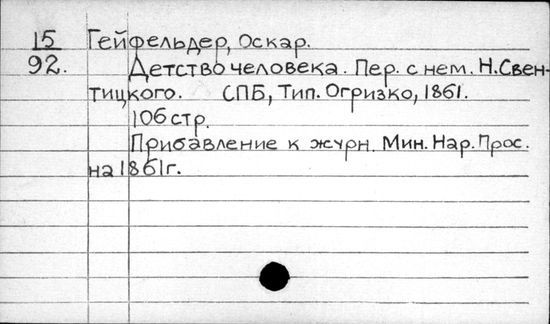 15 Гейфельдер, Оскар.
92. Детство человека. Пер. с нем. Н. Свен-
тицкого. СПБ, Тип. Огризко, 1861.
106 стр.
Прибавление к журн. Мин. Нар. Прос.
на 1861г.